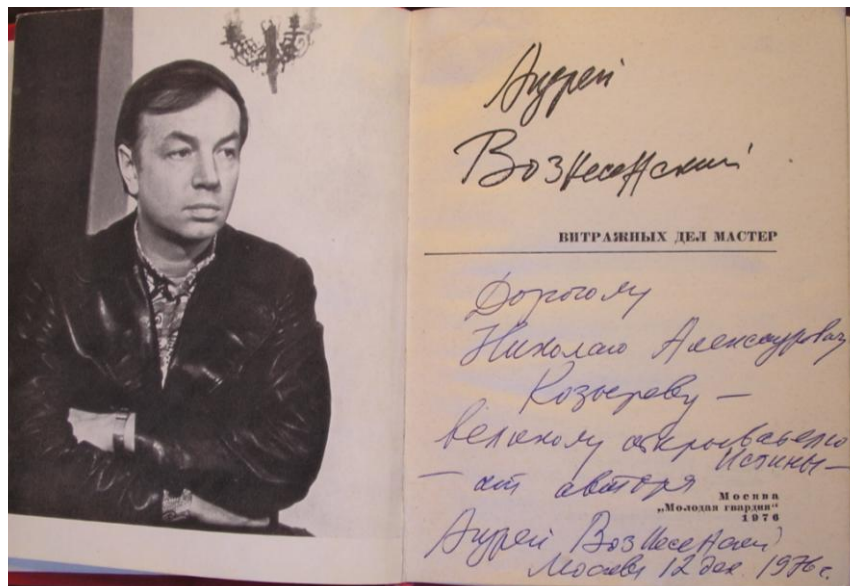 Андрей
Вознесенский
ВИТРАЖНЫХ ДЕЛ МАСТЕР
Дорогому
Николаю Александровичу
Козыреву —
великому открывателю
Истины —
— от автора
Москва
„Молодая гвардия“
1976
Андрей Вознесенский
Москва 12 дек. 1976 г.